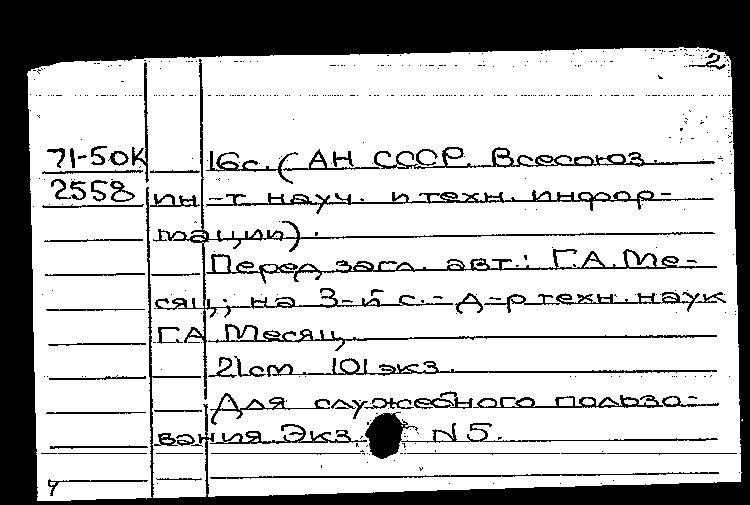 2
71-50К 16с. (АН СССР. Всесоюз.
2558 ин-т науч. и техн. инфор-
мации).
Перед загл. авт.: Г.А. Ме-
сяц; на 3-й с. - д-р техн. наук
Г.А. Месяц
21см. 101 экз.
Для служебного пользо-
вания Экз. N 5.
4